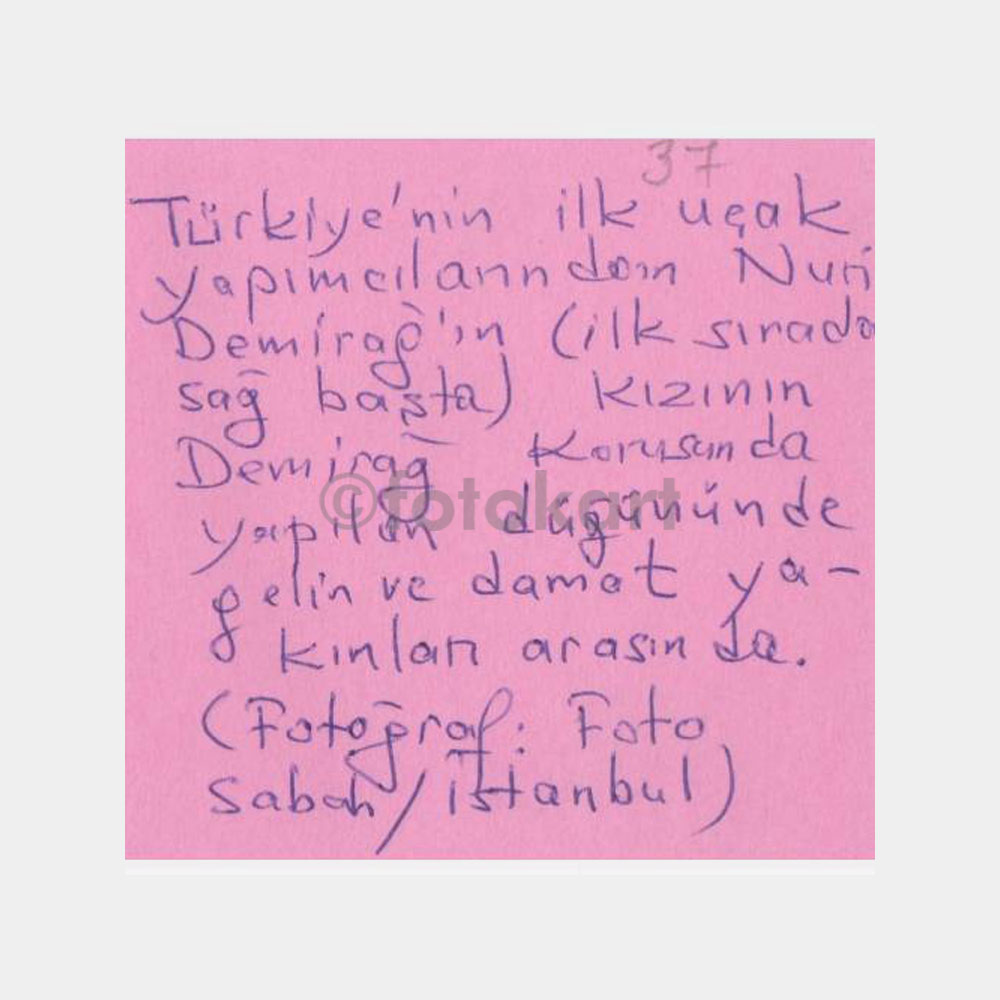 37
Türkiye'nin ilk uçak
yapımcılarından Nuri
Demirağ'ın (ilk sırada
sağ başta) kızının
Demirağ Korusunda
©fotokart
yapılan düğününde
gelin ve damat ya-
kınları arasında.
(Fotoğraf: Foto
Sabah/İstanbul)